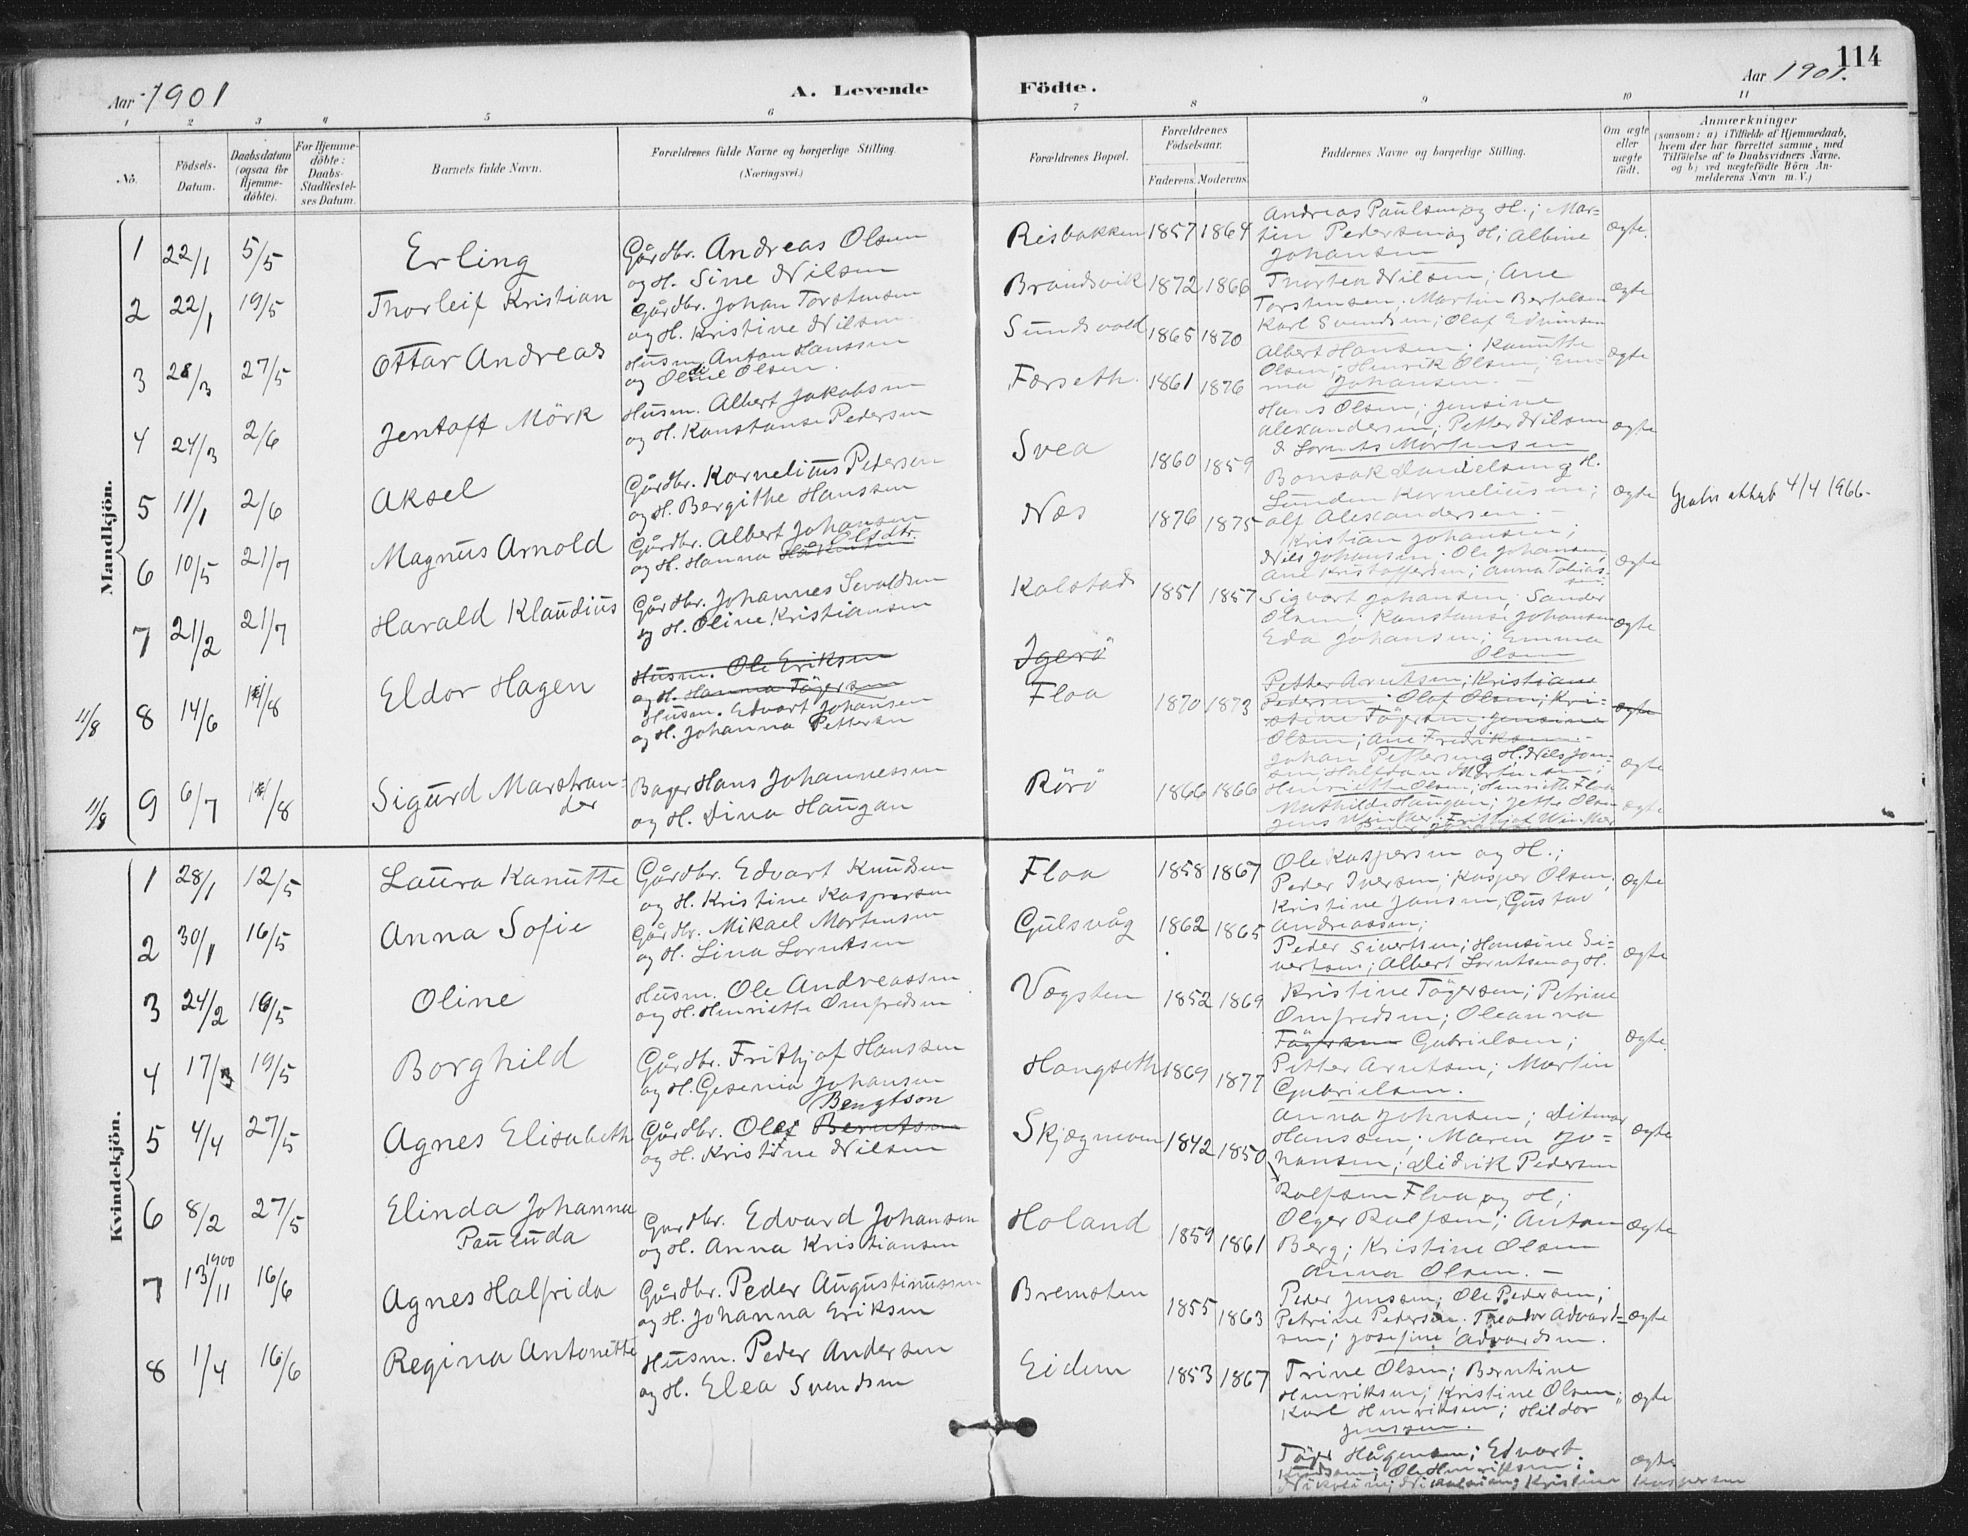 114
Aar 1901
A. Levende
Födte.
Aar 1901.
1 2 3 4 5 6 7 8 9 10 11
No.
Födsels-
Datum.
Daabsdatum
(ogsaa for
Hjemme-
döbte).
For Hjemme-
döbte:
Daabs-
Stadfæstel-
ses Datum.
Barnets fulde Navn.
Forældrenes fulde Navne og borgerlige Stilling.
(Næringsvei.)
Forældrenes Bopæl.
Forældrenes
Födselsaar.
Faderens. Moderens.
Faddernes Navne og borgerlige Stilling.
Om ægte
eller
uægte
født.
Anmærkninger
(saasom: a) i Tilfælde af Hjemmedaab,
hvem der har forrettet samme, med
Tilföielse af to Daabsvidners Navne.
og b) ved uægtefödte Börn An-
melderens Navn m. V.)
Mandkjön.
1 22/1 5/5 Erling
Gårdbr. Andreas Olsen
og H. Sine Nilsen
Risbakken 1857 1864
Andreas Paulsen og H.; Mar-
tin Pedersen og H; Albine
Johansen
ægte.
2 22/1 19/5 Thorleif Kristian
Gårdbr. Johan Torstensen
og H. Kristine Nilsen
Brandsvik 1872 1866
Thorten Nilsen; Ane
Torstensen; Martin Bertelsen
Karl Svendsen; Olaf Edvinsen
ægte
3 28/3 27/5 Ottar Andreas
Husm. Anton Hanssen
og Oldine Olsen.
Sundsvold 1865 1870
Albert Hansen; Kanutte
Olsen; Henrik Olsen; Em-
ma Johansen. –
ægte
4 24/3 2/6 Jentoft Mörk
Husm. Albert Jakobsen
og H. Konstanse Pedersen
Forseth. 1861 1876
Hans Olsen; Jensine
Alexandersen; Petter Nilsen
& Lornts Mortensen
ægte
5 11/1 2/6 Aksel
Gårdbr. Kornelius Petersen
og H. Bergithe Hanssen
Svea 1860 1859
Bonsak Danielsen og H.
Lunden Korneliusen;
Alf Alexandersen. –
ægte
4/4 1966.
6 10/5 21/7 Magnus Arnold
Gårdbr. Albert Johansen
og H. Hanna Håkensen Elfdtr.
Næs 1876 1875
Kristian Johansen;
Nils Johansen; Ole Johansen,
Ane Kristoffersen; Anna Tobias-
sen
ægte
7 21/2 21/7 Harald Klaudius
Gårdbr. Johannes Sevaldsen
og H. Oline Kristiansen
Kolstad 1851 1857
Sigvart Johansen; Sander
Olsen; Konstanse Johansen
Eda Johansen; Emma
Olsen
ægte
11/8 8 14/6 11/8 Eldor Hagen
Husm. Ole Eriksen
og H. Hanna Tögersen
Husm. Edvart Johansen
og H. Johanna Pettersen
Igerö
Floa 1870 1873
Petter Arntsen; Kristiane
Pedersen; Olaf Olsen; Kri-
stine Tögersen; Jensine
Olsen; Ane Fredriksen. –
Johan Pettersen og H. Nils Jen-
sen; Halfdan Mortensen;
Henriette Olsen; Henriette Floa
ægte
ægte
11/8 9 6/7 11/8 Sigurd Marstran-
der
Bager Hans Johannessen
og H. Dina Haugan
Rörö 1866 1866
Mathilde Haugan; Jette Olsen
Jens Winther; Frithjof Winther
ægte
Kvindekjön.
1 28/1 12/5 Laura Kanutte
Gårdbr. Edvart Knudsen
og H. Kristine Kaspersen
Floa 1858 1867
Ole Kaspersen og H.;
Peder Iversen; Kasper Olsen;
Kristine Jensen, Gustav
Andreassen;
ægte
2 30/1 16/5 Anna Sofie
Gårdbr. Mikael Mortensen
og H. Lina Lorntsen
Gulsvåg 1862 1865
Peder Sivertsen; Hansine Si-
vertsen; Albert Lorntsen og H.
ægte
3 24/2 16/5 Oline
Husm. Ole Andreassen
og H. Henriette Omfredsen
Vægsten 1852 1869
Kristine Tögersen; Petrine
Omfredsen; Oleanna
Tögersen Gabrielsen;
Petter Arntsen; Martin
Gabrielsen.
ægte.
4 17/3 19/5 Borghild
Gårdbr. Frithjof Hanssen
og H. Gesenia Johansen
Hongseth 1869 1877
Anna Johnsen; Ditmar
Hanssen; Maren Jo-
hansen; Didrik Pedersen
ægte
5 4/4 27/5 Agnes Elisabeth
Gårdbr. Olef Berntsen Bengtson
og H. Kristine Nilsen
Skjægmoen 1842 1850
Rolfsen Floa og H;
Olger Rolfsen; Anton
Berg; Kristine Olsen
Anna Olsen. –
ægte
6 8/2 27/5 Elinda Johanna
Paulida
Gardbr. Edvard Johansen
og H. Anna Kristiansen
Holand 1859 1861
Peder Jensen; Ole Pedersen;
Petrine Pedersen; Theodor Advard-
sen; Josefine Advardsen.
ægte
7 1900 13/11 16/6 Agnes Halfrida
Gårdbr. Peder Augustinussen
og H. Johanna Eriksen
Bremsten 1855 1863
Trine Olsen; Berntine
Henriksen; Kristine Olsen;
Karl Henriksen; Hildor
Jenssen.
ægte
8 1/4 16/6 Regina Antonette
Husm. Peder Andersen
og H. Elea Svendsen
Eidem 1853 1867
Töger Hågensen; Edvart
Knudsen; Ole Henriksen;
Kristine Kaspersen
ægte